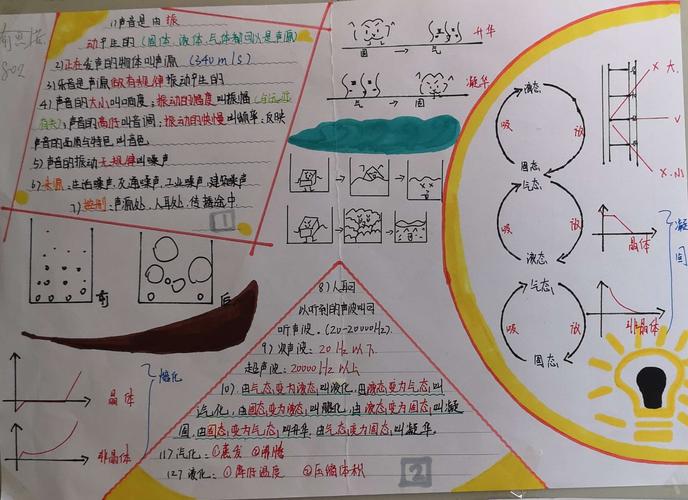 1)声音是由振
动产生的(固体、液体、气体都可以是声源)
2)正在发声的物体叫声源 (340m/s)
3)乐音是声源做有规律振动产生的
4)声音的大小叫响度;振动的幅度叫振幅
声音的高低叫音调;振动的快慢叫频率;反映
声音的品质与特色叫音色
5)声音的振动无规律叫噪声
6)来源:生活噪声、交通噪声、工业噪声、建筑噪声
7)控制:声源处、人耳处、传播途中
1
802
固 → 气
升华
气 → 固
凝华
液态
吸 放
固态
气态
吸 放
液态
气态
吸 放
固态
大
V
晶体
非晶体
凝固
前
后
熔化
晶体
非晶体
8)人耳可
以听到的声波叫可
听声波。(20-20000Hz).
9)次声波:20Hz以下
超声波:20000Hz以上
10)由气态变为液态叫液化,由液态变为气态叫
汽化,由固态变为液态叫融化,由液态变为固态叫凝
固,由固态变为气态叫升华,由气态变为固态叫凝华。
11)汽化:①蒸发 ②沸腾
12)液化:①降低温度 ②压缩体积
2